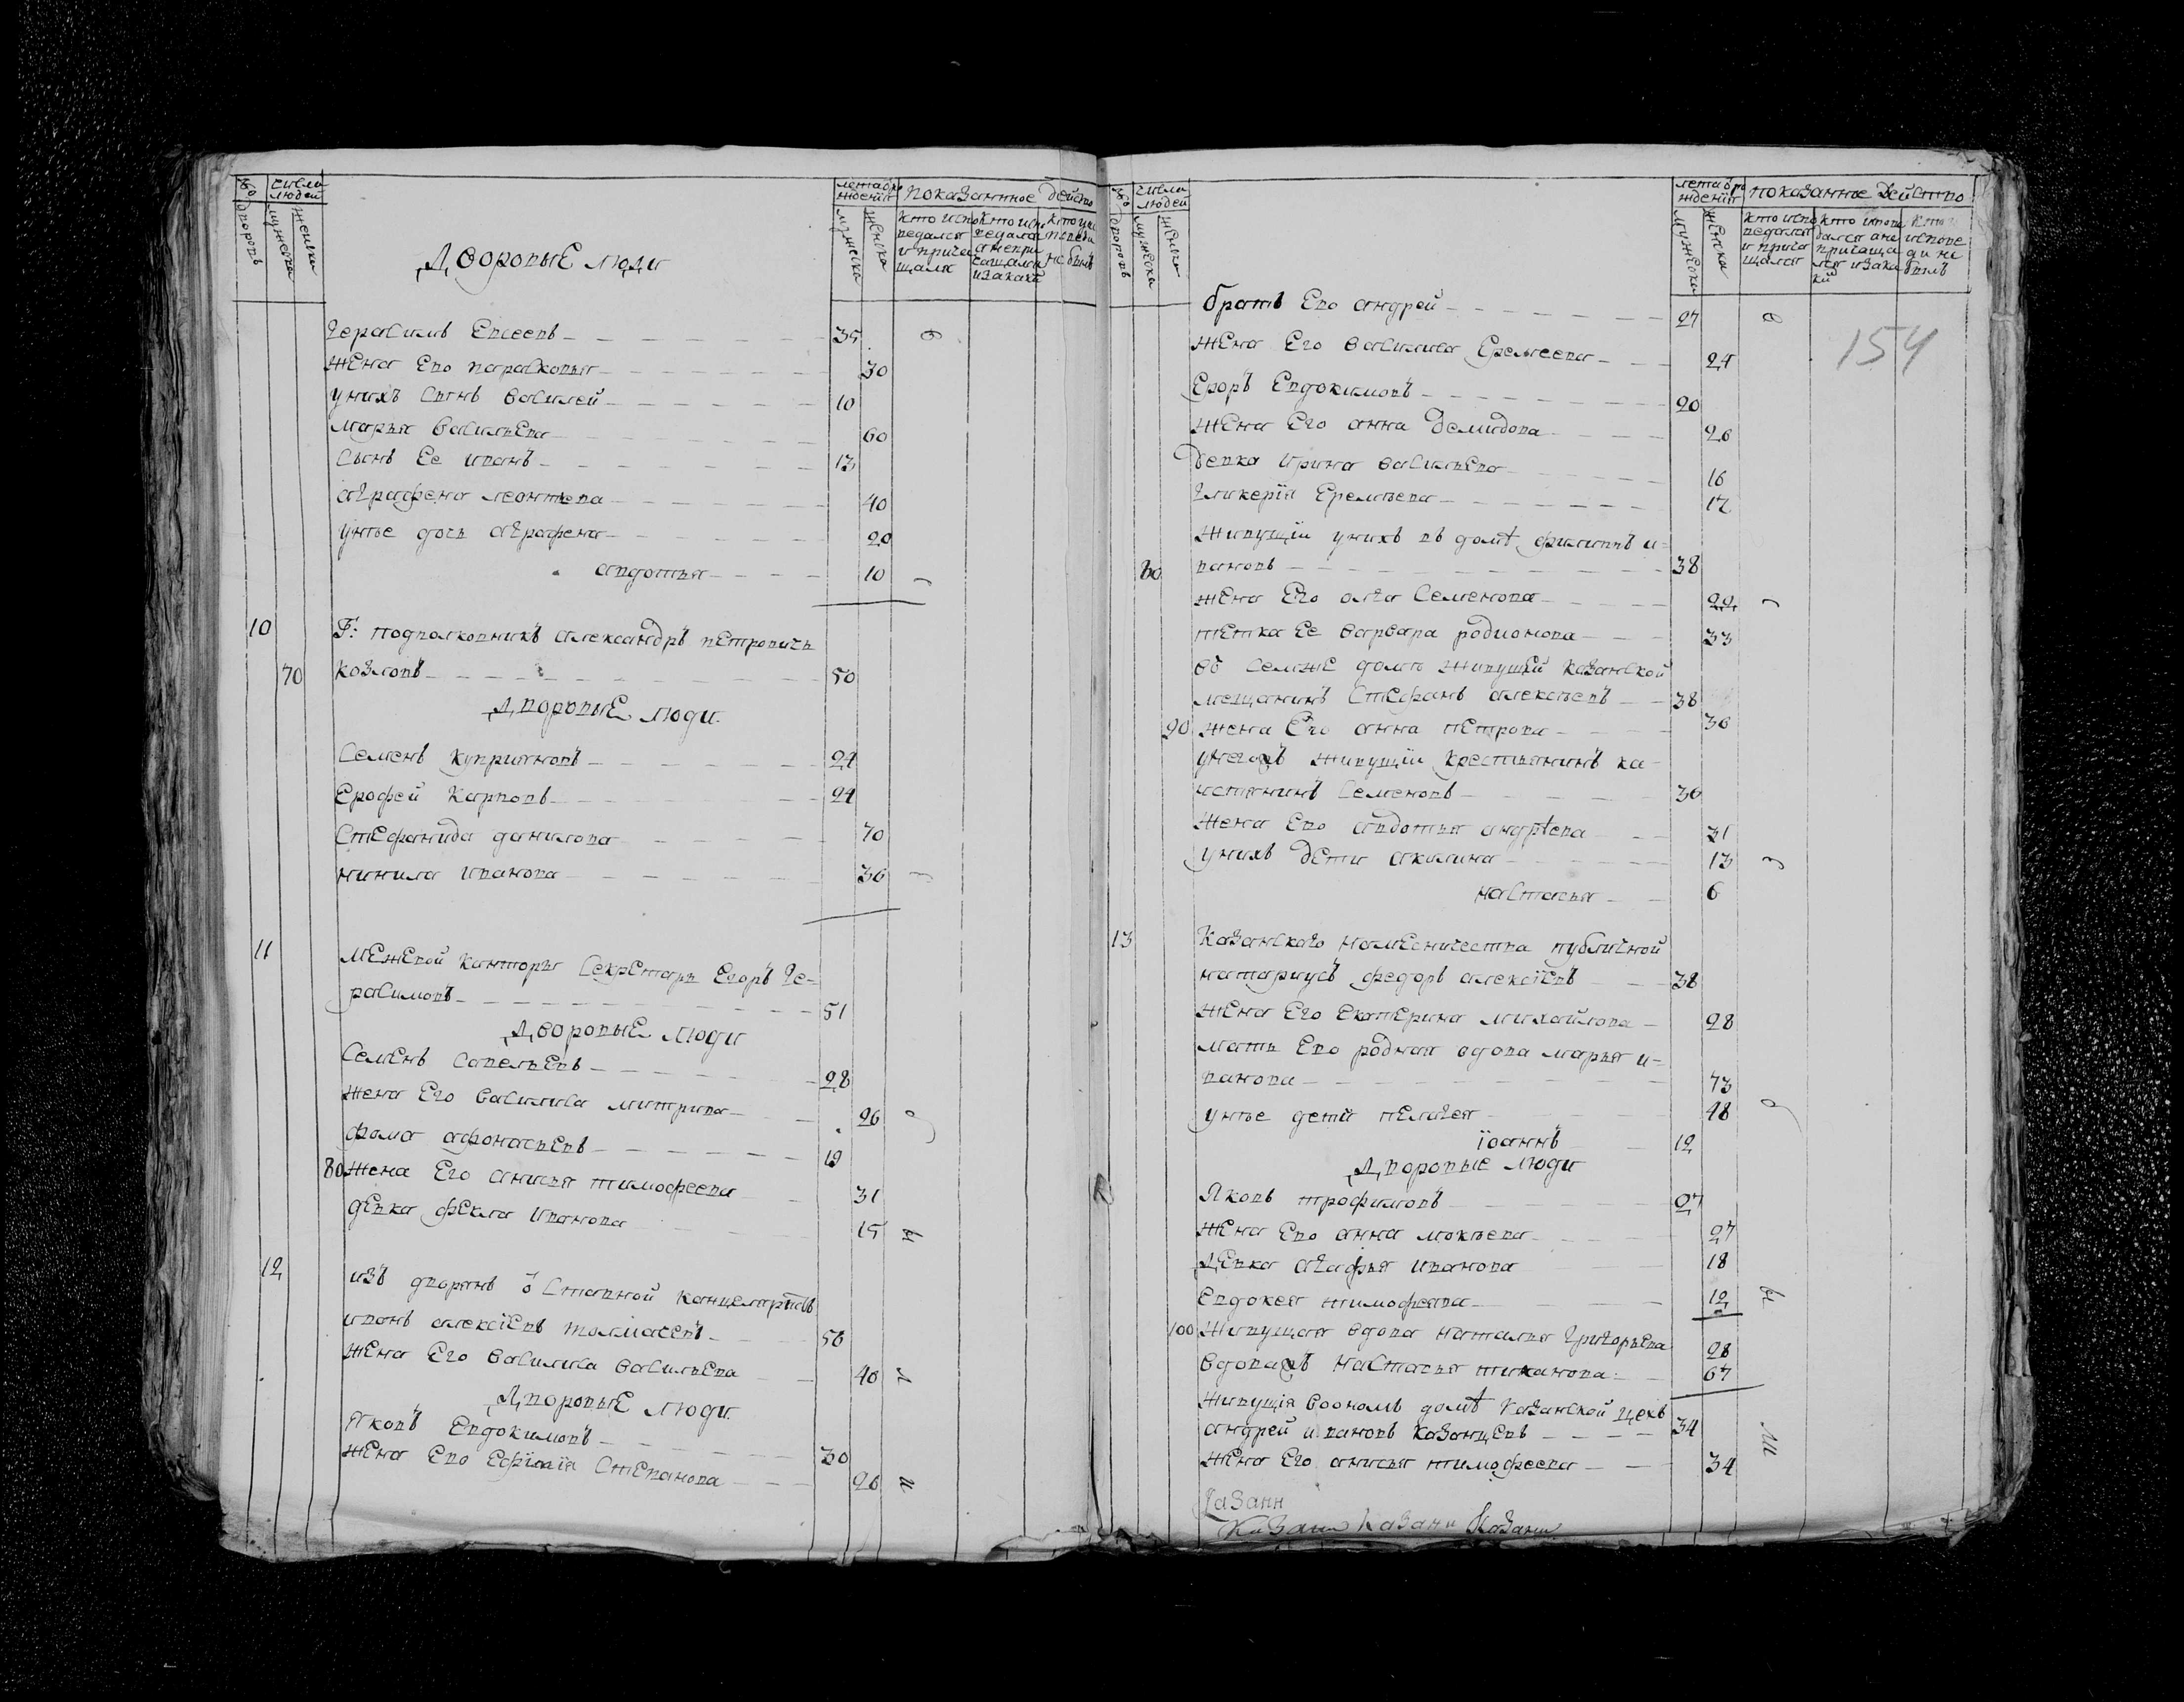 № дворовъ
число людей
мужеска
женска
лета от рождения
мужеска
женска
показанное действо
кто исповедался и причащался
Дворовые люди
Герасимъ Евсеевъ 35
жена Ево парасковья 30
у нихъ сынъ Василей 10
марья Васильева 60
Сынъ Ее иванъ 13
аграфена леонтьева 40
у нее дочь аграфена 20
авдотья 10
10
Г: подполковникъ александръ петровичь
70 Козловъ 50
Дворовые люди
Семенъ Куприяновъ 24
Ерофей Карповъ 24
Стефанида данилова 70
ненила иванова 36
11
Межевой канторы Секретарь Егоръ Ге-
расимовъ 51
Дворовые люди
Семенъ Савельевъ 28
жена Его Василиса митрива 26
фома афонасьевъ 19
80 жена Его анисья тимофеева 31
девка фекла иванова 15
12
изъ дворянъ в Ставной канцеляристъ
иванъ алексіевъ толмачевъ 50
жена Его Василиса Васильева 40
Дворовые люди
Яковъ Евдокимовъ 30
жена Ево Ефімія Степанова 26
№ дворовъ
число людей
мужеска
женска
лета от рождения
мужеска
женска
показанное действо
154
братъ Ево андрей 27
жена Его Василиса Еремеева 24
Егоръ Евдокимовъ 20
жена Его анна Демидова 26
девка ирина Васильева 16
гликерія Еремѣева 17
живущій у нихъ въ домѣ филиппъ и-
80 вановъ 38
жена Его олга Семенова 22
тетка Ее варвара родионова 33
Въ Семже доме живущей казанской
мещанинъ Стефанъ алексѣевъ 38
90 жена Его анна петрова 36
у негожъ живущій крестьянинъ ка-
настянинъ Семеновъ 36
жена Ево авдотья андрѣева 31
у нихъ дети акилина 13
настасья 6
13
Казанскаго намесничества публичной
натариусъ федоръ алексіевъ 38
жена Его Екатерина михайлова 28
мать Ево родная вдова марья и-
ванова 73
у нее дети пелагея 48
іоаннъ 12
Дворовые люди
Яковъ трофимовъ 27
жена Ево анна мокѣева 27
Девка агафья иванова 18
Евдокея тимофеява 12
100 живущая вдова наталья григорьева 28
вдоважъ настасья тиханова 67
живущія в ономъ домѣ казанской цехъ
андрей ивановъ казанцевъ 34
жена Его анисья тимофеева 34
Казани
Казани Казани Казани